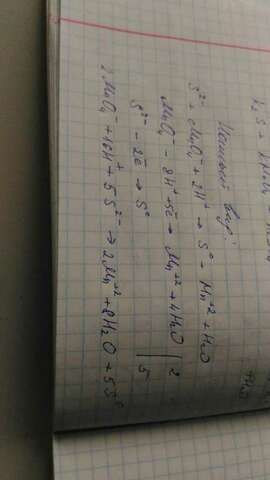 Ионный вид:
S²⁻ + MnO₄⁻ + 2H⁺ → S⁰ + Mn⁺² + H₂O
MnO₄⁻ - 8H⁺ + 5ē → Mn⁺² + 4H₂O | 2
S²⁻ - 2ē → S⁰ | 5
2MnO₄⁻ + 16H⁺ + 5S²⁻ → 2Mn⁺² + 8H₂O + 5S⁰